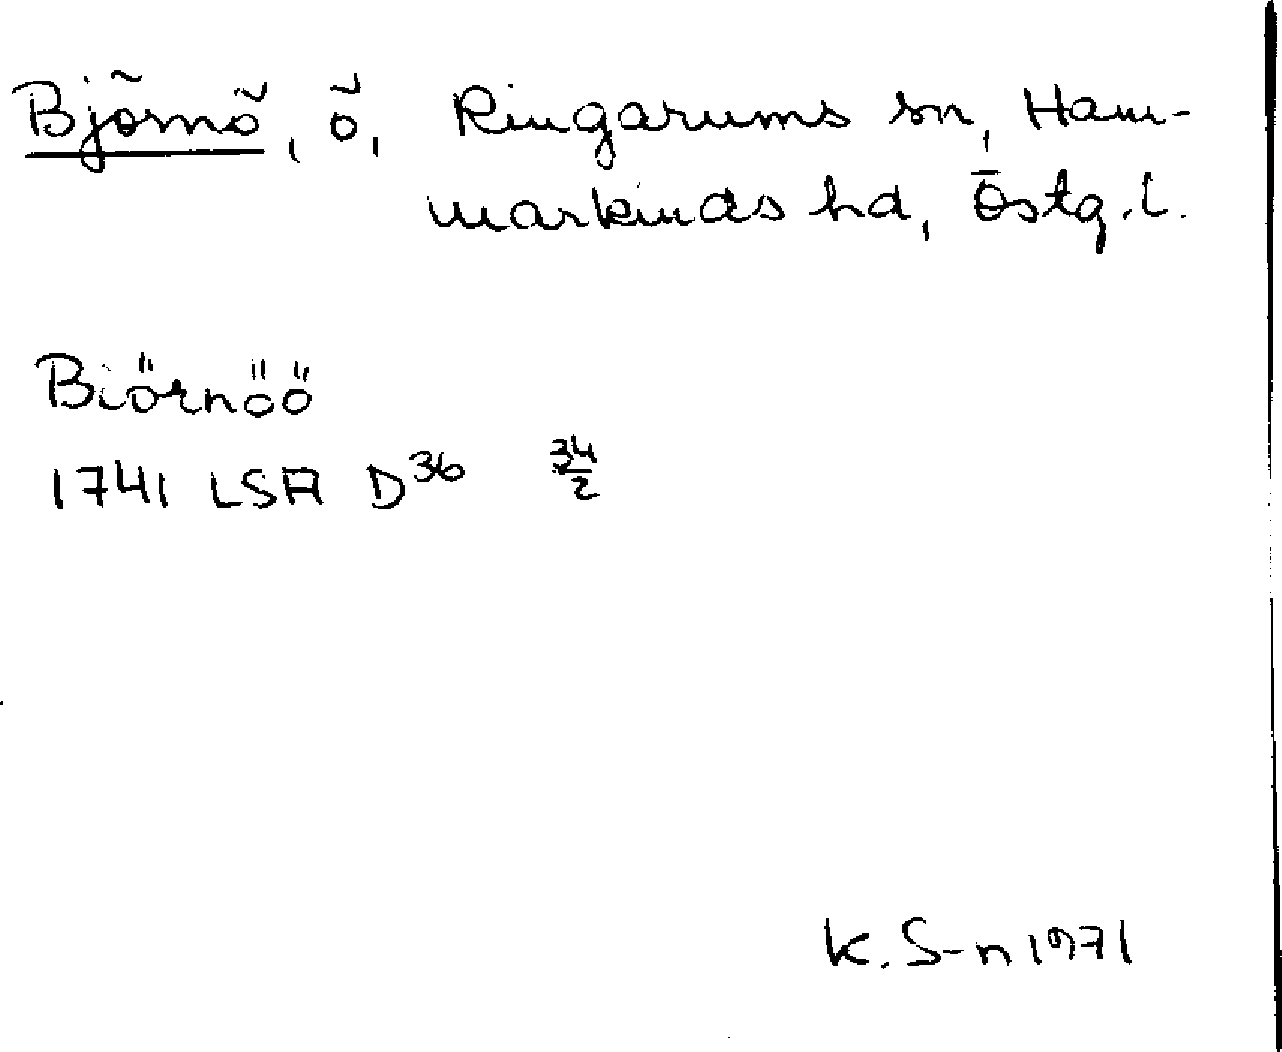 Björnö, ö, Ringarums sn, Ham-
markinds hd, Östg.l.
Biörnöö
1741 LSA D36 34/2
K. S-n 1971